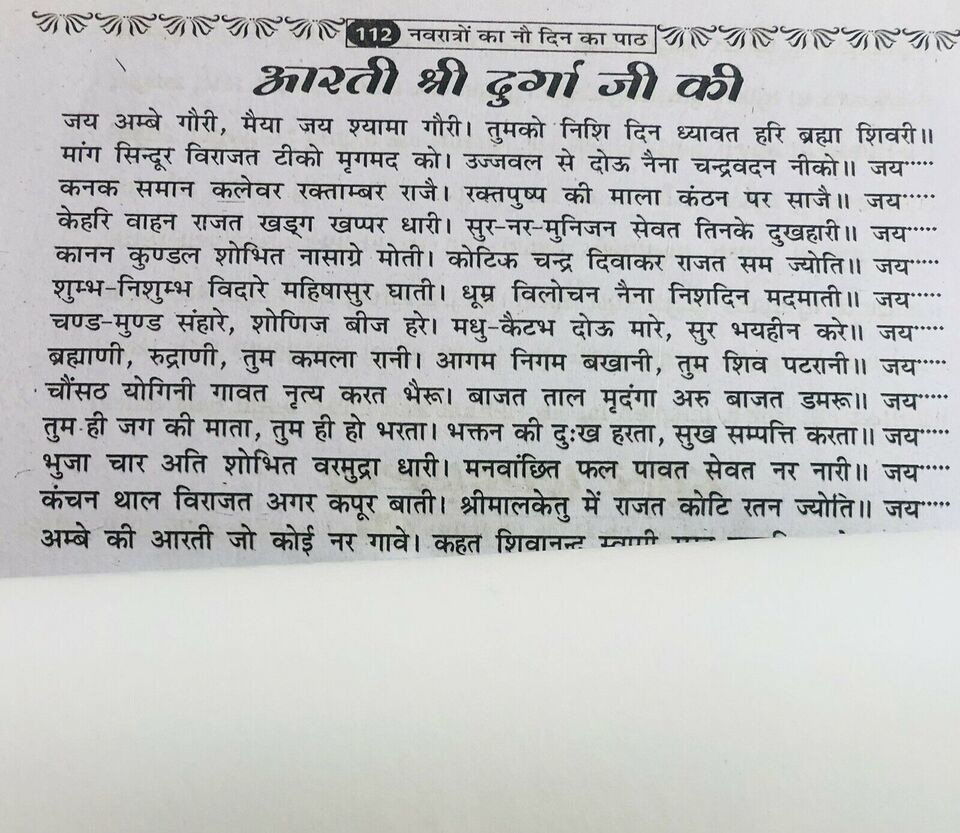 112 नवरात्रों का नौ दिन का पाठ
आरती श्री दुर्गा जी की
जय अम्बे गौरी, मैया जय श्यामा गौरी। तुमको निशि दिन ध्यावत हरि ब्रह्मा शिवरी॥
मांग सिन्दूर विराजत टीको मृगमद को। उज्जवल से दोऊ नैना चन्द्रवदन नीको॥ जय.....
कनक समान कलेवर रक्ताम्बर राजै। रक्तपुष्प की माला कंठन पर साजै॥ जय.....
केहरि वाहन राजत खड्ग खप्पर धारी। सुर-नर-मुनिजन सेवत तिनके दुखहारी॥ जय.....
कानन कुण्डल शोभित नासाग्रे मोती। कोटिक चन्द्र दिवाकर राजत सम ज्योति॥ जय.....
शुम्भ-निशुम्भ विदारे महिषासुर घाती। धूम्र विलोचन नैना निशदिन मदमाती॥ जय.....
चण्ड-मुण्ड संहारे, शोणिज बीज हरे। मधु-कैटभ दोऊ मारे, सुर भयहीन करे॥ जय.....
ब्रह्माणी, रुद्राणी, तुम कमला रानी। आगम निगम बखानी, तुम शिव पटरानी॥ जय.....
चौंसठ योगिनी गावत नृत्य करत भैरू। बाजत ताल मृदंगा अरु बाजत डमरू॥ जय.....
तुम ही जग की माता, तुम ही हो भरता। भक्तन की दुःख हरता, सुख सम्पत्ति करता॥ जय.....
भुजा चार अति शोभित वरमुद्रा धारी। मनवांछित फल पावत सेवत नर नारी॥ जय.....
कंचन थाल विराजत अगर कपूर बाती। श्रीमालकेतु में राजत कोटि रतन ज्योति॥ जय.....
अम्बे की आरती जो कोई नर गावे। कहत शिवानन्द स्वामी